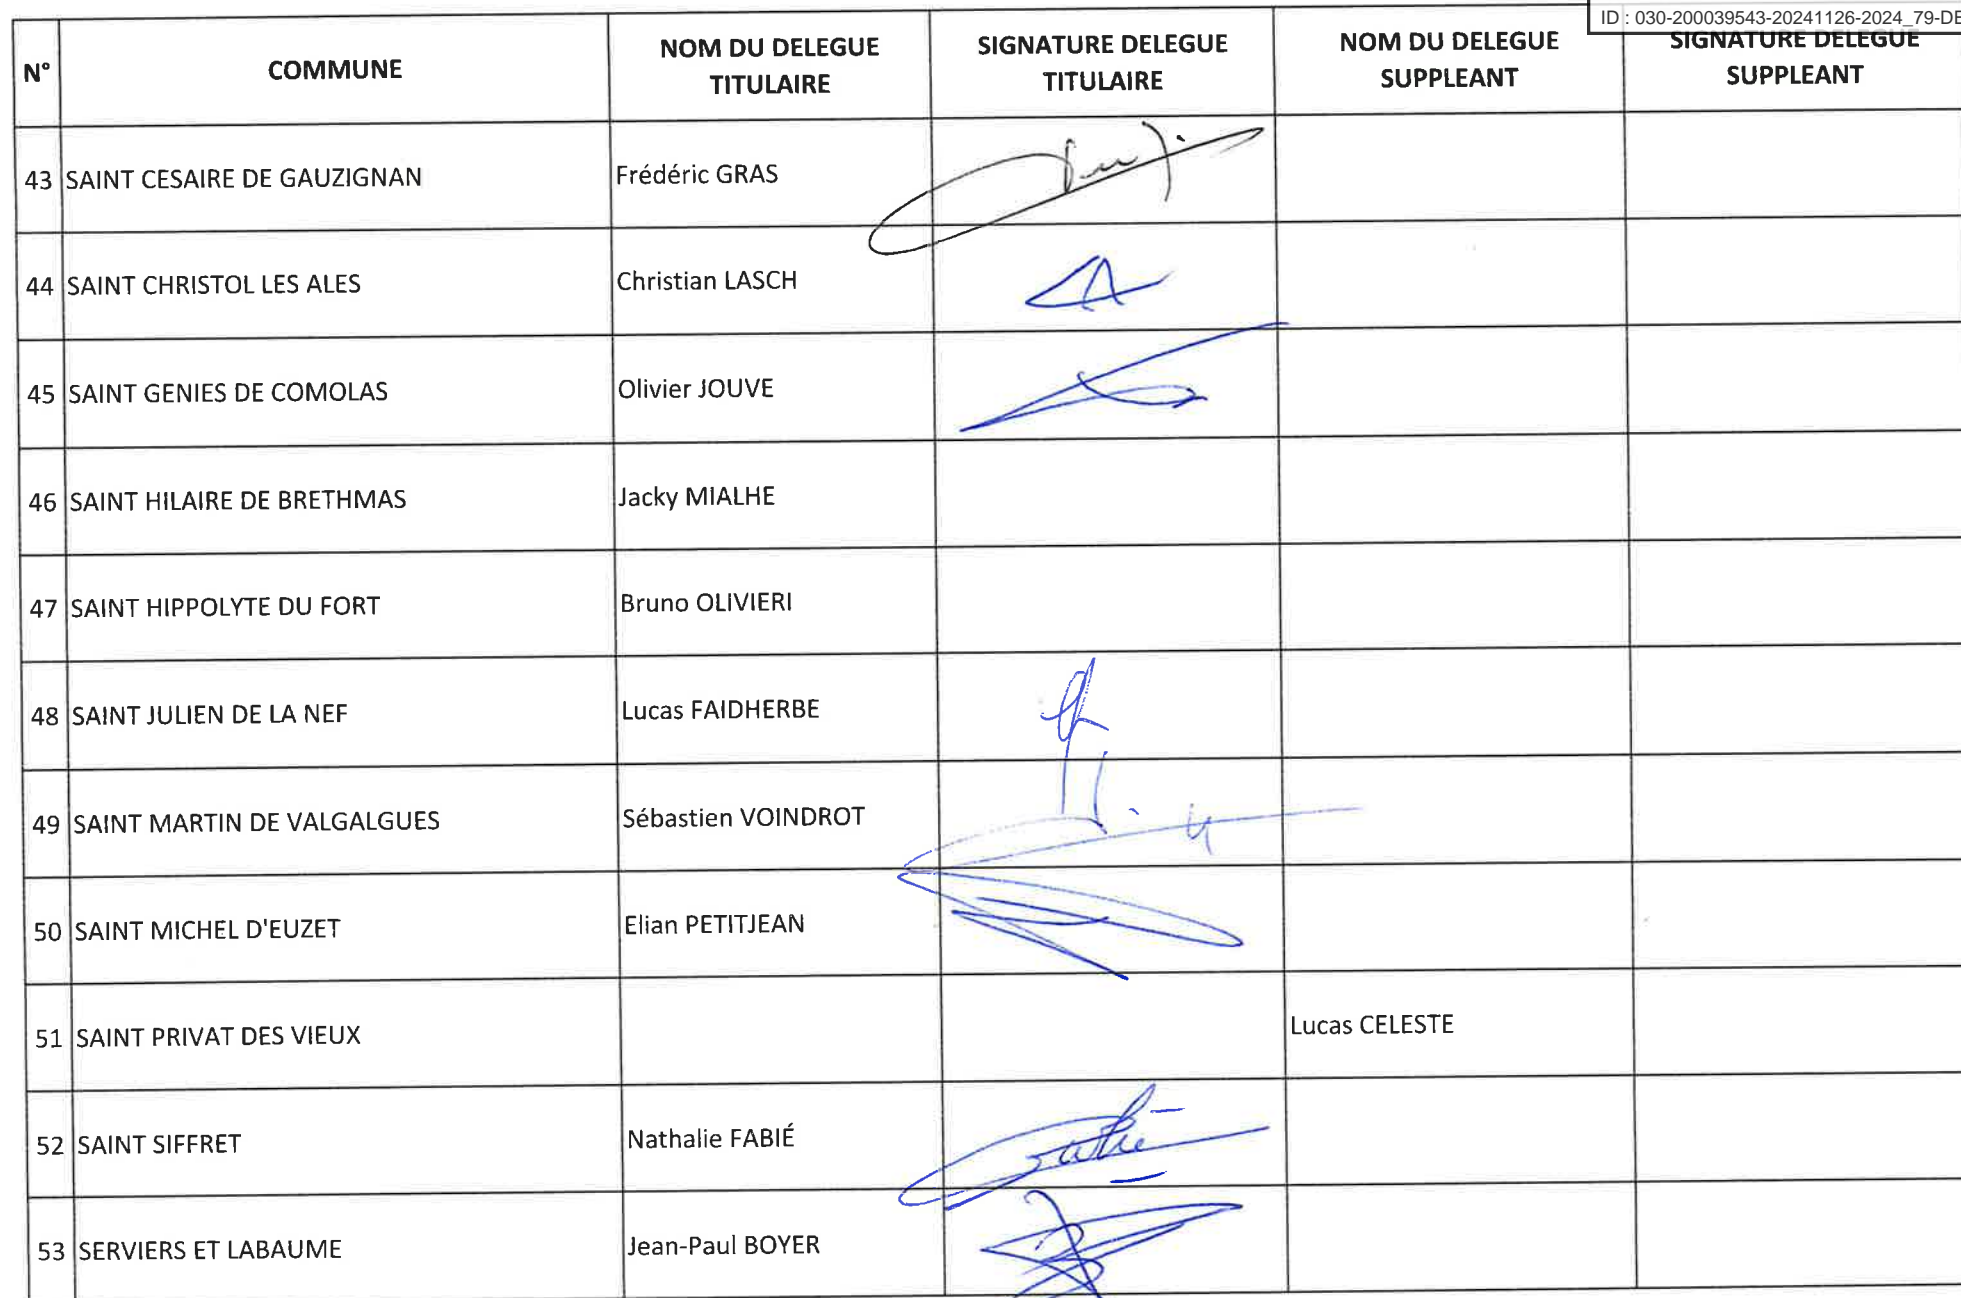 ID : 030-200039543-20241126-2024_79-DE
N° COMMUNE NOM DU DELEGUE TITULAIRE SIGNATURE DELEGUE TITULAIRE NOM DU DELEGUE SUPPLEANT SIGNATURE DELEGUE SUPPLEANT
43 SAINT CESAIRE DE GAUZIGNAN Frédéric GRAS
44 SAINT CHRISTOL LES ALES Christian LASCH
45 SAINT GENIES DE COMOLAS Olivier JOUVE
46 SAINT HILAIRE DE BRETHMAS Jacky MIALHE
47 SAINT HIPPOLYTE DU FORT Bruno OLIVIERI
48 SAINT JULIEN DE LA NEF Lucas FAIDHERBE
49 SAINT MARTIN DE VALGALGUES Sébastien VOINDROT
50 SAINT MICHEL D'EUZET Elian PETITJEAN
51 SAINT PRIVAT DES VIEUX Lucas CELESTE
52 SAINT SIFFRET Nathalie FABIÉ
53 SERVIERS ET LABAUME Jean-Paul BOYER